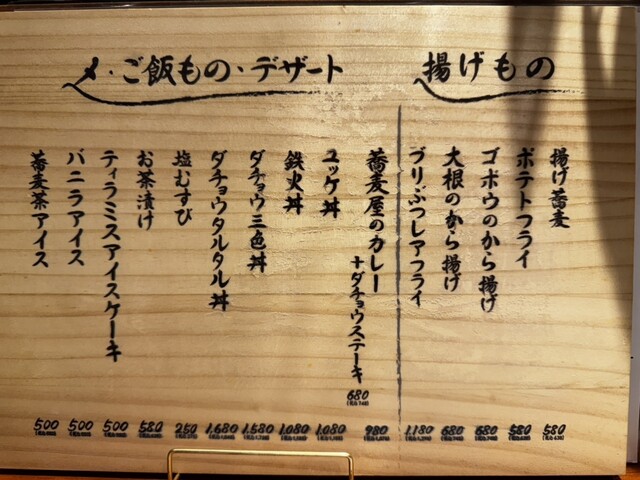 揚げもの
揚げ蕎麦 580
ポテトフライ 580
ゴボウのから揚げ 680
大根のから揚げ 680
ブリぶつしアフライ 1,180
〆・ご飯もの・デザート
蕎麦屋のカレー 980
+ダチョウステーキ 680
ユッケ丼 1,080
鉄火丼 1,080
ダチョウ三色丼 1,580
ダチョウタルタル丼 1,680
塩むすび 250
お茶漬け 580
ティラミスアイスケーキ 500
バニラアイス 500
蕎麦茶アイス 500